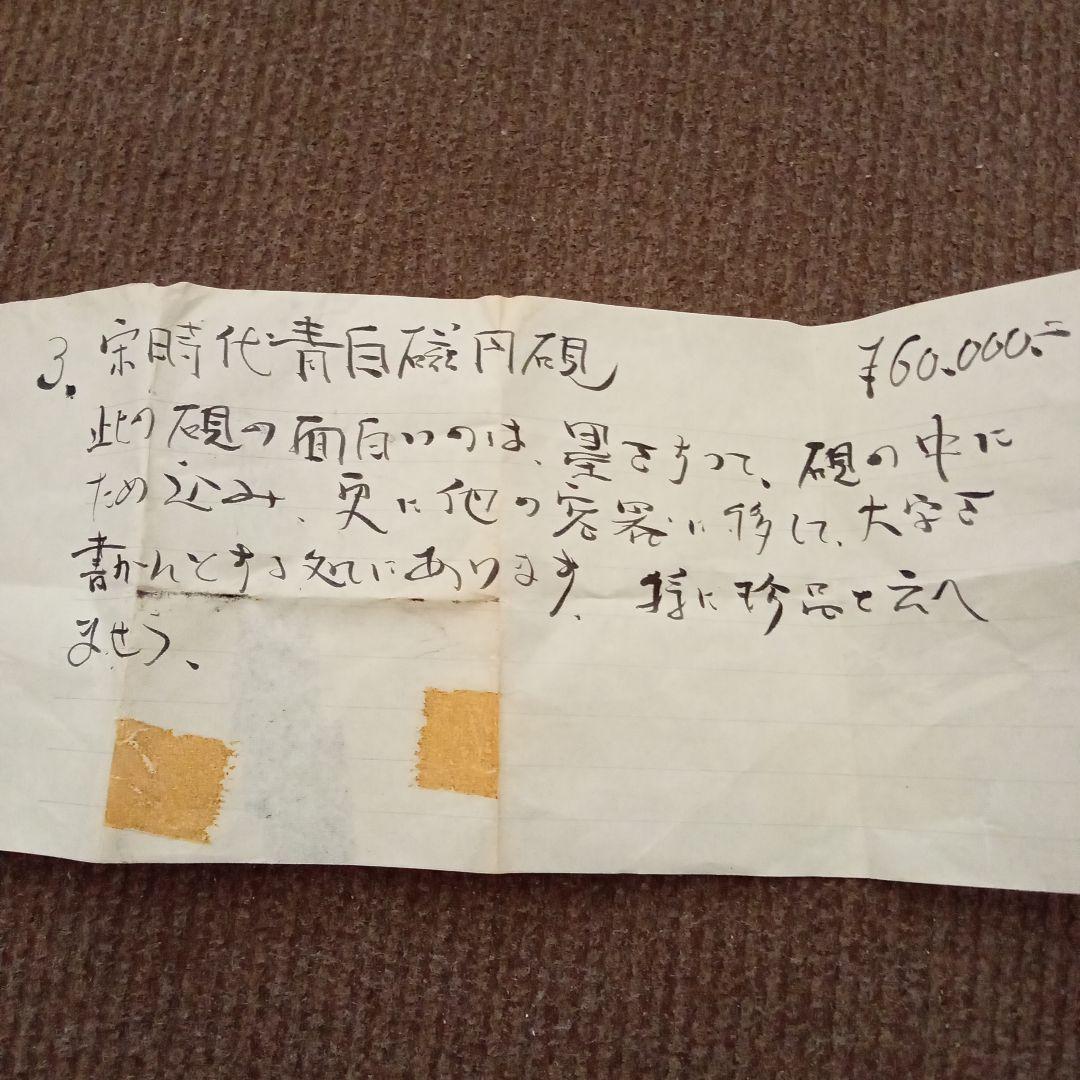 3. 宋時代青白磁円硯 ¥60.000.-
此の硯の面白いのは、墨をすって、硯の中に
ため込み、更に他の容器に移して、大字を
書かんとする処にあります、特に珍品と云へ
ませう、